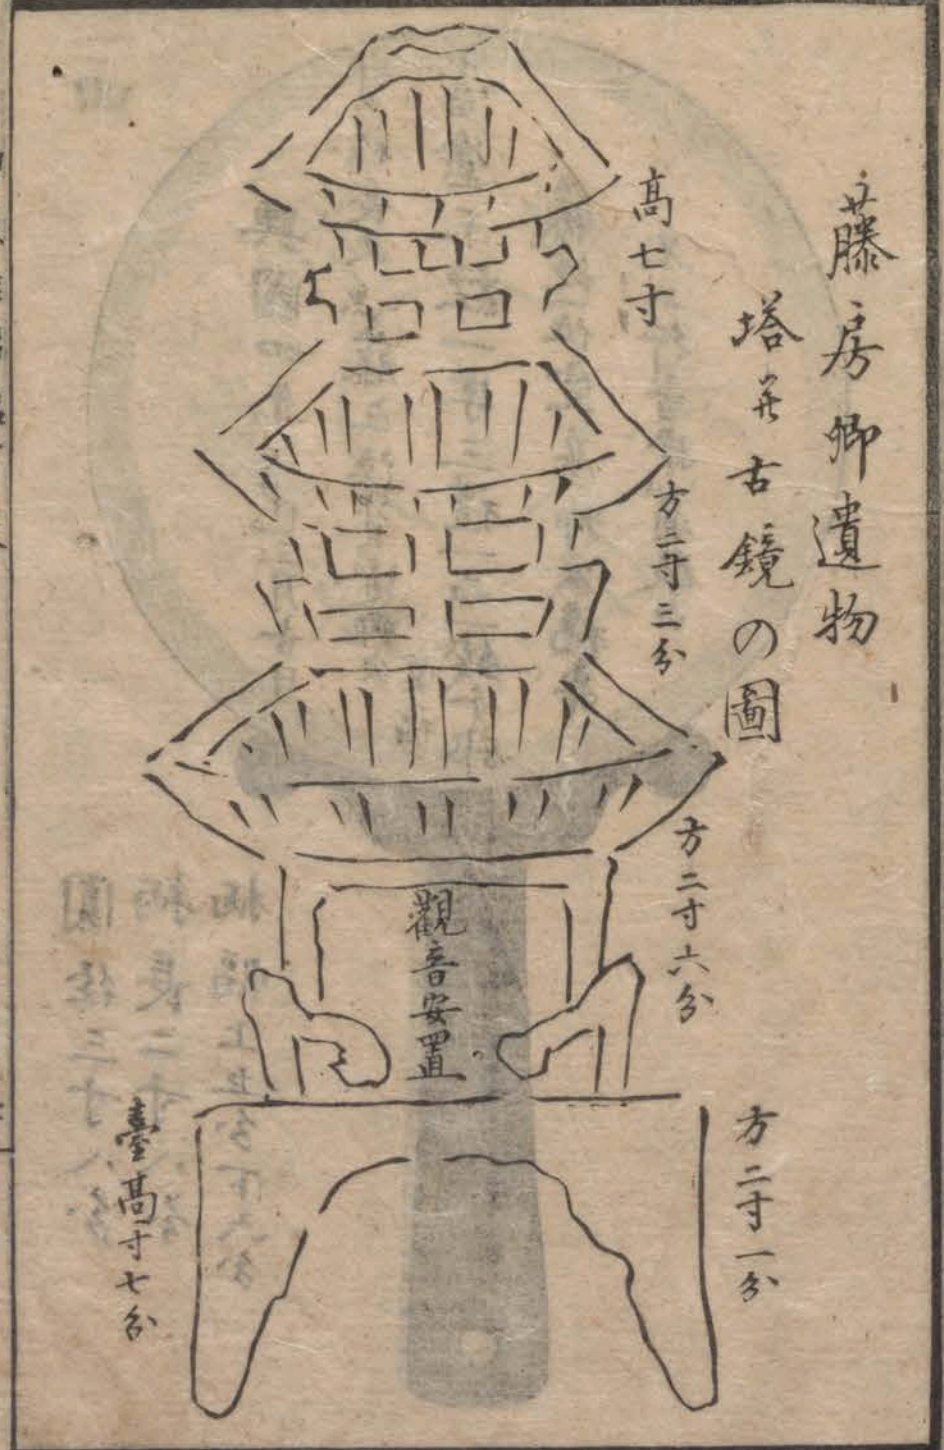 藤房卿遺物
塔并古鏡の圖
高七寸
方二寸三分
方二寸六分
觀音安置
方二寸一分
臺高寸七分